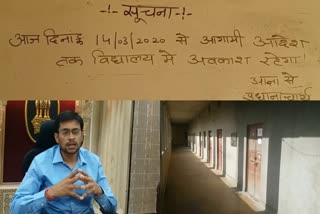 -!- सूचना -!-
आज दिनांक 14/03/2020 से आगामी आदेश
तक विद्यालय में अवकाश रहेगा
आज्ञा से
प्रधानाचार्य